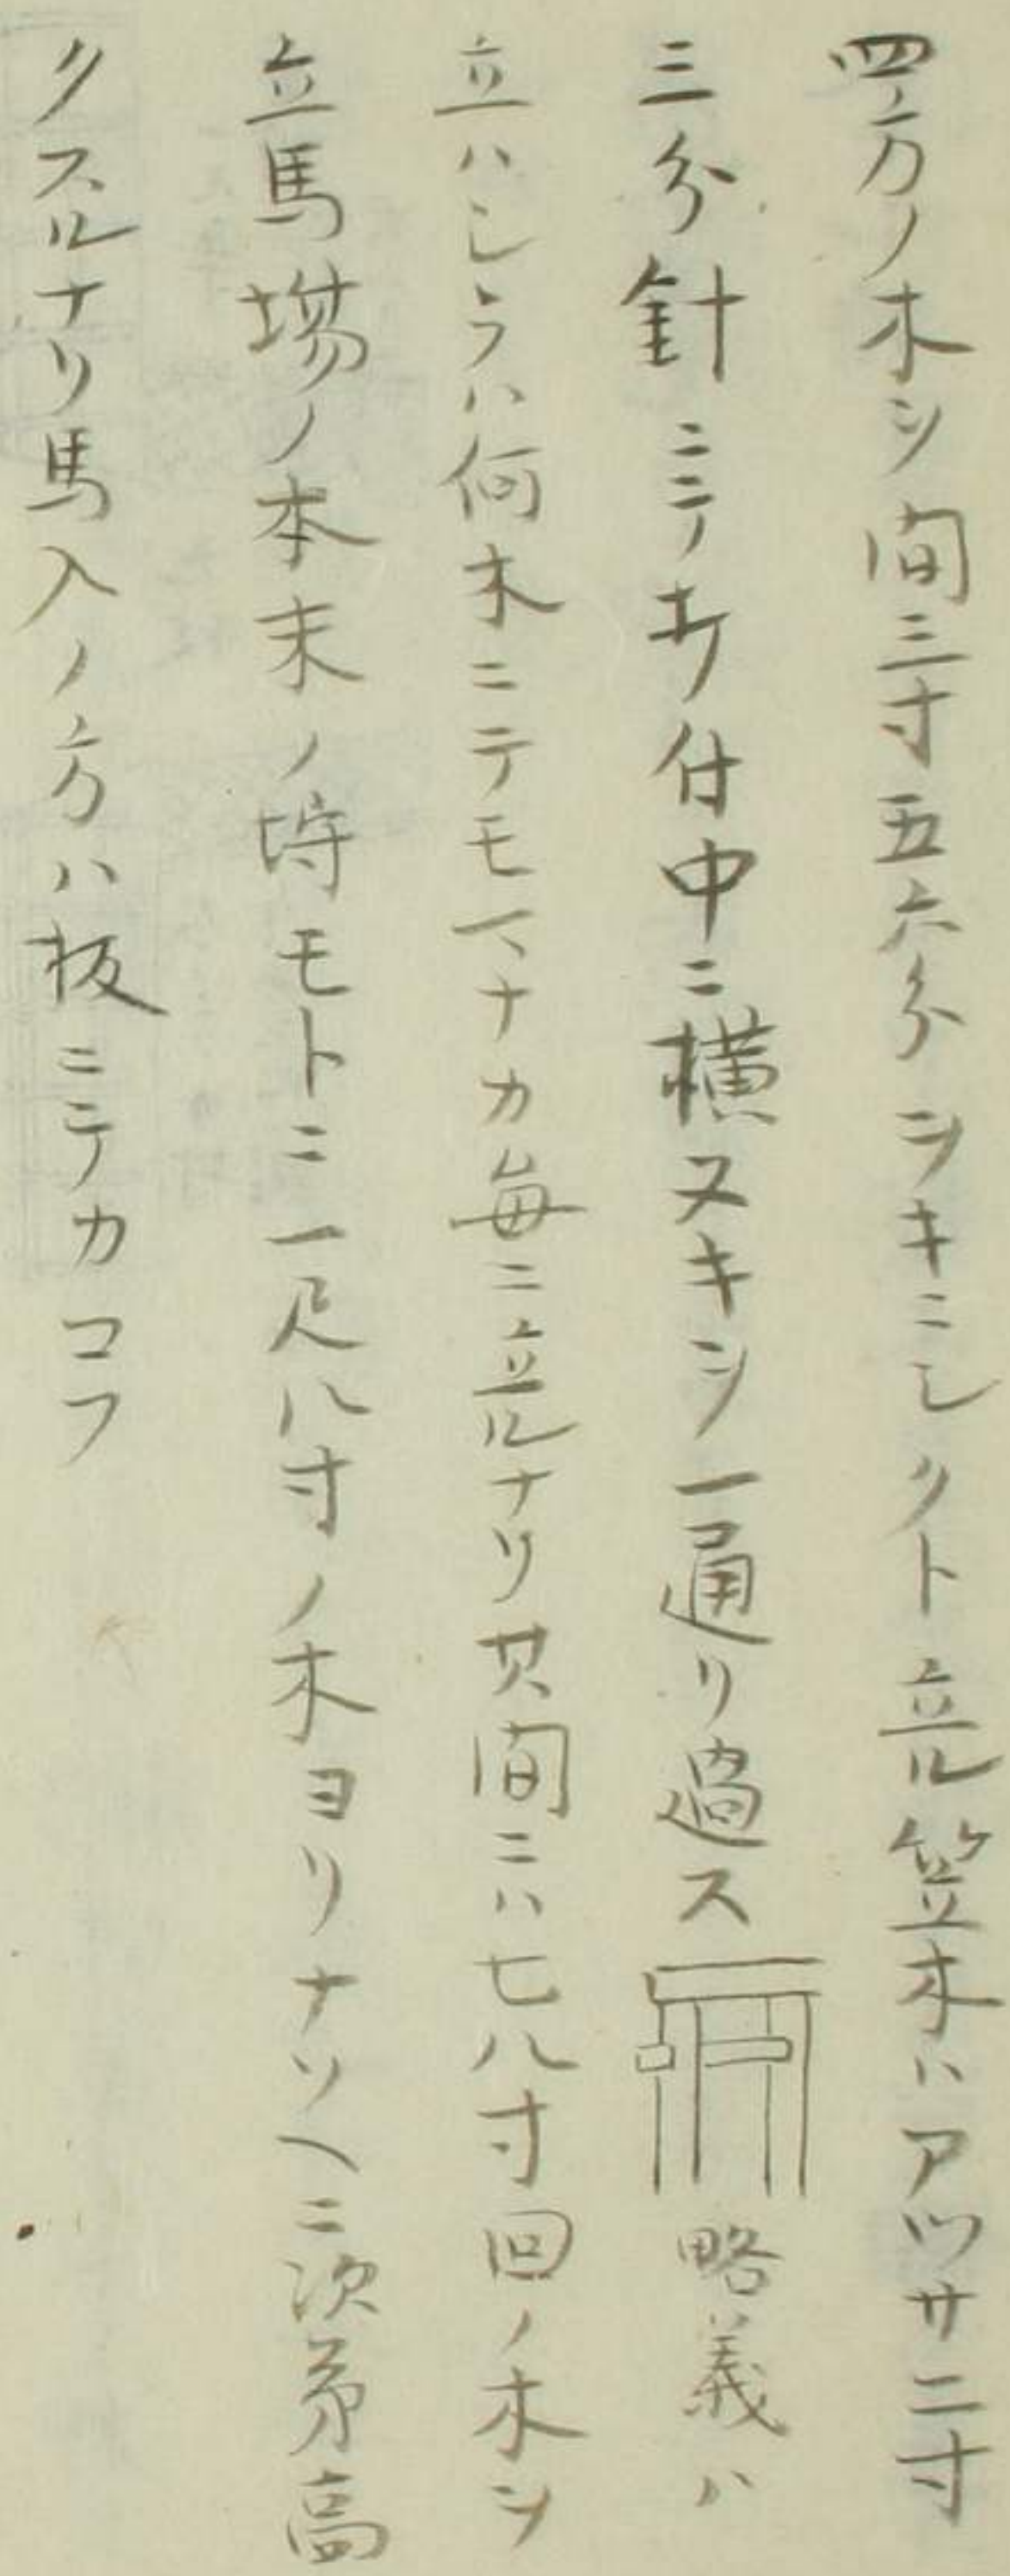 四方ノ木ヲ間三寸五六分ヲキニシクト立ル笠木ハアツサ二寸
三分針ニテ打付中ニ横ヌキヲ一通リ過ス略義ハ
立ハシラハ何木ニテモ一マナカ毎ニ立ルナリ其間ニハ七八寸回ノ木ヲ
立馬場ノ本末ノ埒モトニ一尺八寸ノ木ヨリナソヘニ次第高
クスルナリ馬入ノ方ハ板ニテカコフ